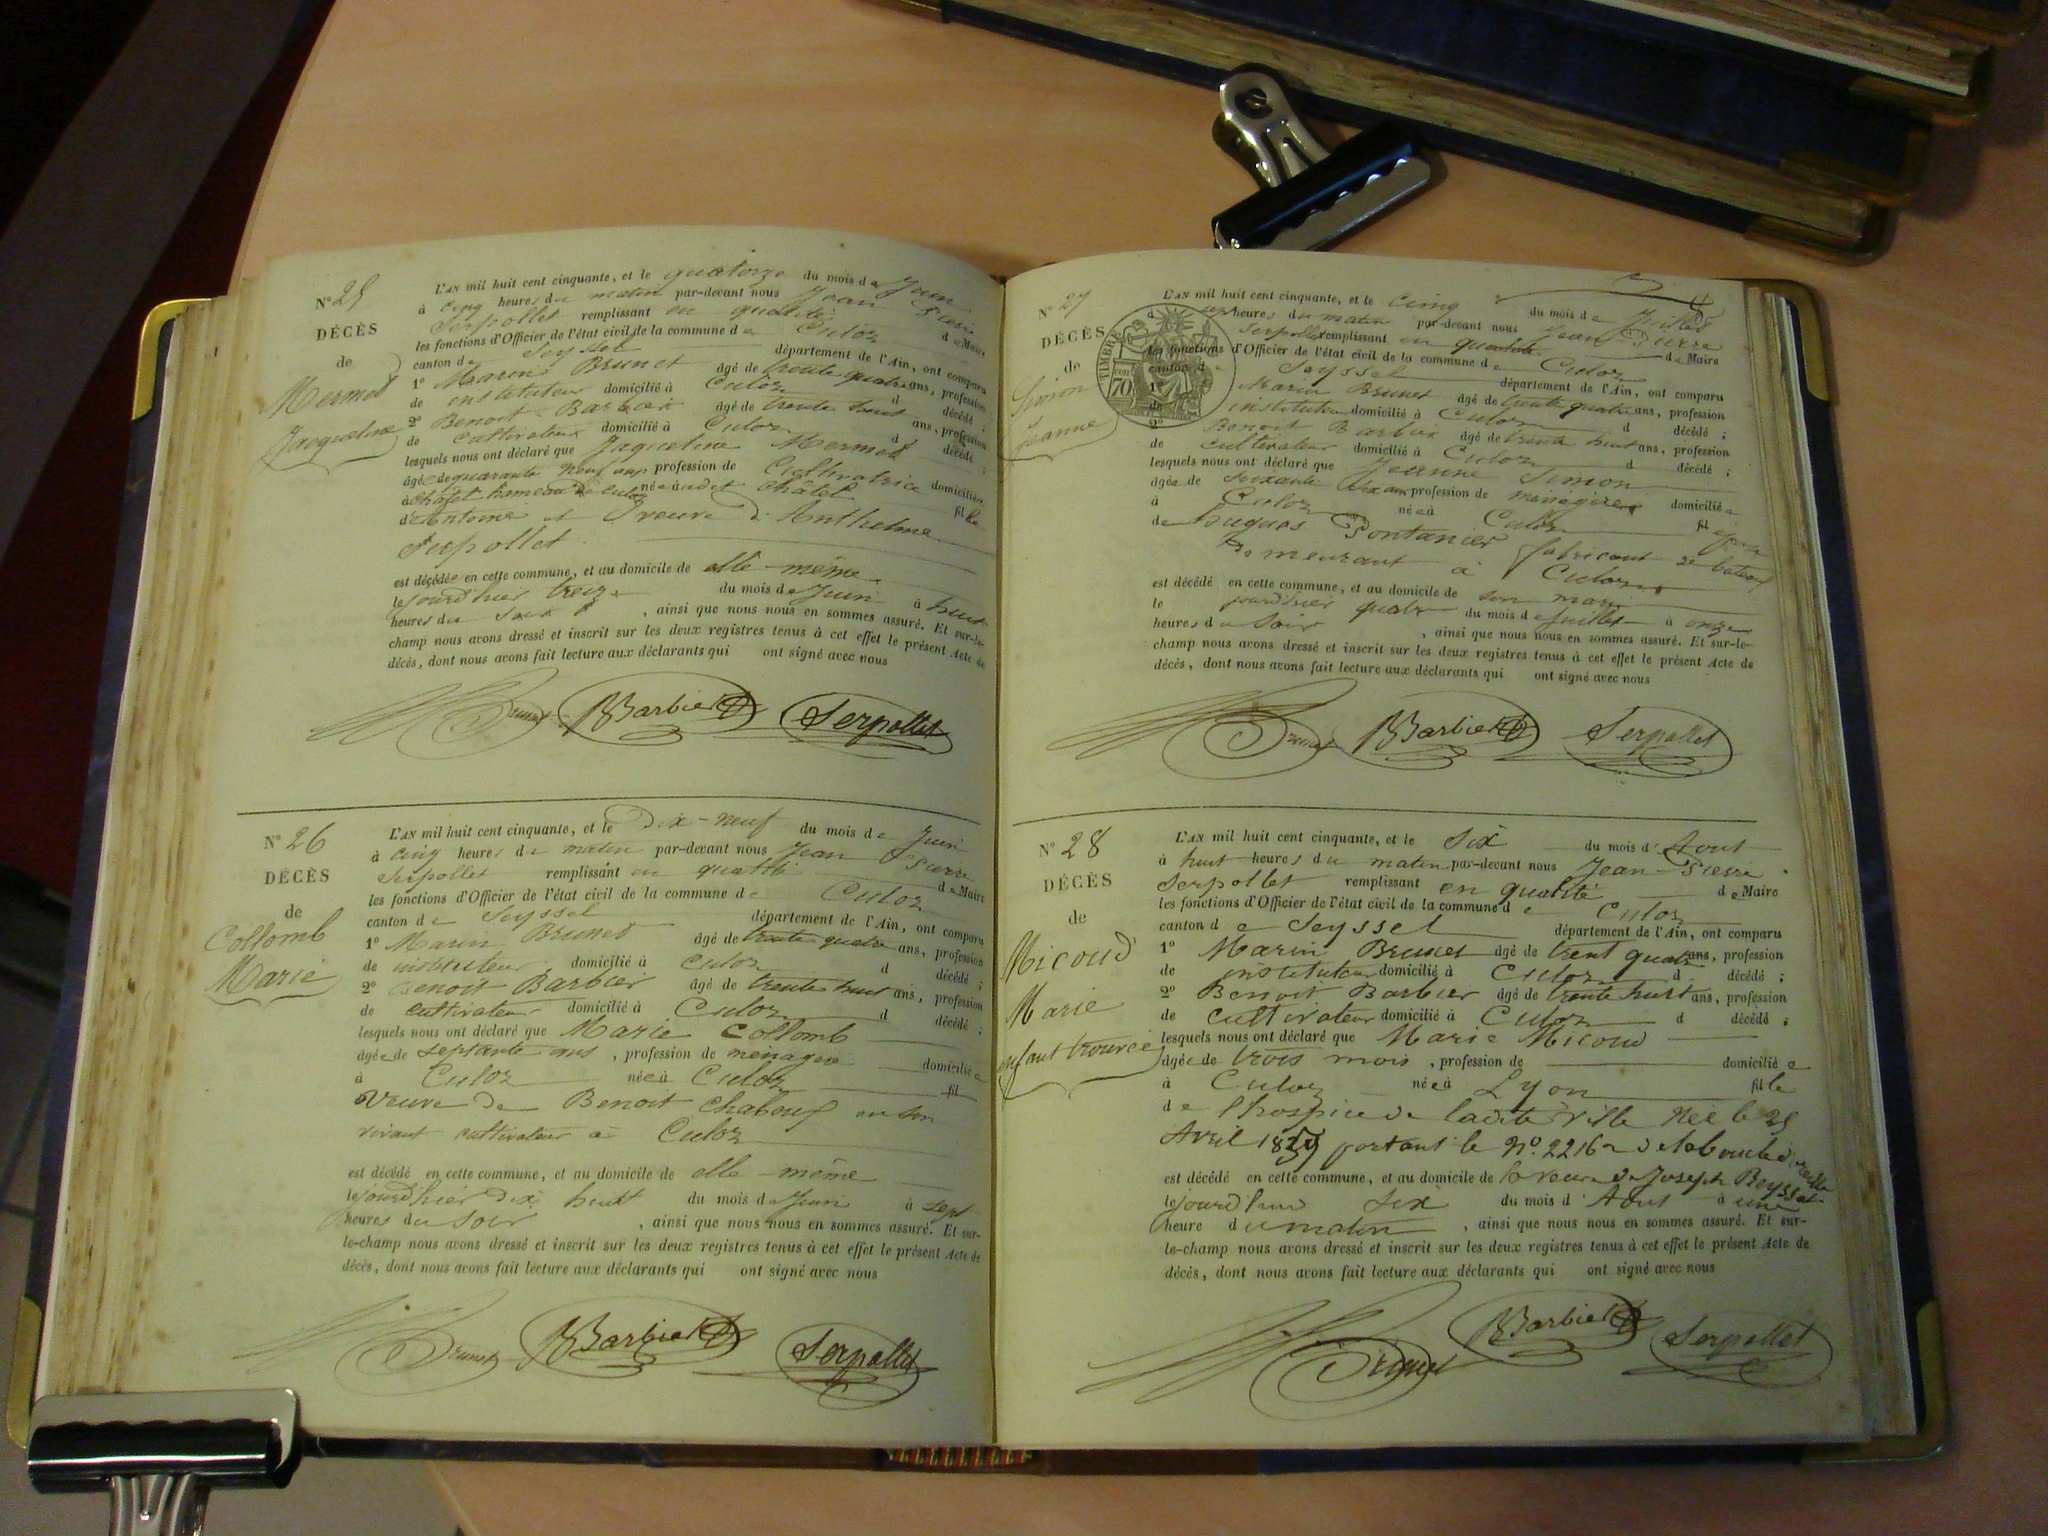 N° 25
DÉCÈS
de
Mermet
Jacqueline
L'AN mil huit cent cinquante, et le quatorze du mois de Juin
à cinq heures du matin par-devant nous Jean Pierre
Serpollet remplissant en qualité de Maire
les fonctions d'Officier de l'état civil de la commune de Culoz
canton de Seyssel département de l'Ain, ont comparu
1° Marin Brunet âgé de trente quatre ans, profession
de instituteur domicilié à Culoz d décédé ;
2° Benoit Barbier âgé de trente huit ans, profession
de cultivateur domicilié à Culoz d décédé ;
lesquels nous ont déclaré que Jacqueline Mermet
âgée de quarante neuf ans profession de Cultivatrice domiciliée
à châtel hameau de Culoz née audit châtel fille
d'Antoine et Veuve d'Anthelme
Serpollet
est décédée en cette commune, et au domicile de elle-même
le jourd'hier treize du mois de Juin à huit
heures du soir , ainsi que nous nous en sommes assuré. Et sur-le-
champ nous avons dressé et inscrit sur les deux registres tenus à cet effet le présent Acte de
décès, dont nous avons fait lecture aux déclarants qui ont signé avec nous
Brunet BBarbier Serpollet
N° 26
DÉCÈS
de
Collomb
Marie
L'AN mil huit cent cinquante, et le dix-neuf du mois de Juin
à cinq heures du matin par-devant nous Jean Pierre
Serpollet remplissant en qualité de Maire
les fonctions d'Officier de l'état civil de la commune de Culoz
canton de Seyssel département de l'Ain, ont comparu
1° Marin Brunet âgé de trente quatre ans, profession
de instituteur domicilié à Culoz d décédé ;
2° Benoit Barbier âgé de trente huit ans, profession
de cultivateur domicilié à Culoz d décédé ;
lesquels nous ont déclaré que Marie Collomb
âgée de septante ans , profession de ménagère domiciliée
à Culoz née à Culoz fil
Veuve de Benoit Chaboud en son
vivant cultivateur à Culoz
est décédé en cette commune, et au domicile de elle-même
le jourd'hier dix huit du mois de Juin à sept
heures du soir , ainsi que nous nous en sommes assuré. Et sur-
le-champ nous avons dressé et inscrit sur les deux registres tenus à cet effet le présent Acte de
décès, dont nous avons fait lecture aux déclarants qui ont signé avec nous
Brunet BBarbier Serpollet
N° 27
DÉCÈS
de
Simon
Jeanne
TIMBRE
70
L'AN mil huit cent cinquante, et le cinq du mois de Juillet
heures du matin par-devant nous Jean Pierre
Serpollet remplissant en qualité de Maire
les fonctions d'Officier de l'état civil de la commune de Culoz
canton d Seyssel département de l'Ain, ont comparu
1° Marin Brunet âgé de trente quatre ans, profession
de instituteur domicilié à Culoz d décédé ;
2° Benoit Barbier âgé de trente huit ans, profession
de cultivateur domicilié à Culoz d décédé ;
lesquels nous ont déclaré que Jeanne Simon
âgée de soixante dix ans profession de ménagère domiciliée
à Culoz née à Culoz fil
de hugues Pontanier fabricant de bateaux
Demeurant à Culoz
est décédé en cette commune, et au domicile de son mari
le jourd'hier quatre du mois de Juillet à onze
heures du soir , ainsi que nous nous en sommes assuré. Et sur-le-
champ nous avons dressé et inscrit sur les deux registres tenus à cet effet le présent Acte de
décès, dont nous avons fait lecture aux déclarants qui ont signé avec nous
Brunet BBarbier Serpollet
N° 28
DÉCÈS
de
Micoud
Marie
enfant trouvée
L'AN mil huit cent cinquante, et le six du mois d'Aout
à huit heures du matin par-devant nous Jean-Pierre
Serpollet remplissant en qualité de Maire
les fonctions d'Officier de l'état civil de la commune de Culoz
canton de Seyssel département de l'Ain, ont comparu
1° Marin Brunet âgé de trent quatre ans, profession
de instituteur domicilié à Culoz d décédé ;
2° Benoit Barbier âgé de trente huit ans, profession
de cultivateur domicilié à Culoz d décédé ;
lesquels nous ont déclaré que Marie Micoud
âgée de trois mois , profession de domiciliée
à Culoz née à Lyon fille
de l'hospice de ladite ville née le 25
Avril 18 portant le N° 2216 de la boucle d'oreille
est décédé en cette commune, et au domicile de la veuve de Joseph Beysset
le jourd'hui six du mois d'Aout à une
heure du matin , ainsi que nous nous en sommes assuré. Et sur-
le-champ nous avons dressé et inscrit sur les deux registres tenus à cet effet le présent Acte de
décès, dont nous avons fait lecture aux déclarants qui ont signé avec nous
Brunet BBarbier Serpollet